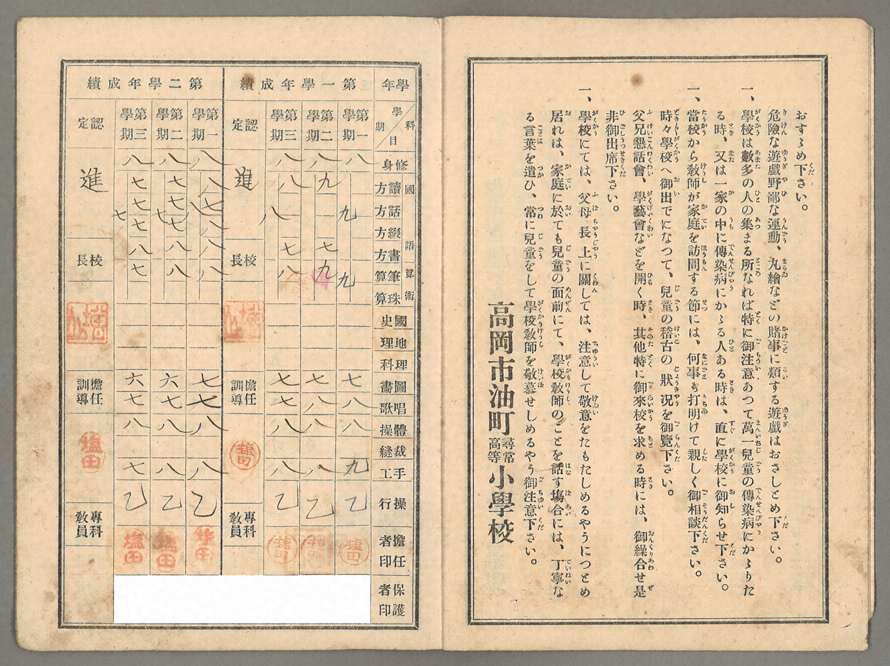 おすゝめ下さい。
危險な遊戯野鄙な運動、丸繪などの賭事に類する遊戯はおさしとめ下さい。
一、學校は數多の人の集まる所なれば特に御注意あつて萬一兒童の傳染病にかゝりた
る時、又は一家の中に傳染病にかゝる人ある時は、直に學校に御知らせ下さい。
一、當校から敎師が家庭を訪問する節には、何事も打明けて親しく御相談下さい。
時々學校へ御出でになつて、兒童の稽古の狀況を御覽下さい。
父兄懇話會、學藝會などを開く時、其他特に御來校を求める時には、御繰合せ是
非御出席下さい。
一、學校にては、父母長上に關しては、注意して敬意をたもたしめるやうにつとめ
居れは、家庭に於ても兒童の面前にて、學校敎師のことを話す塲合には、丁寧な
る言葉を遣ひ、常に兒童をして學校敎師を敬慕せしめるやう御注意下さい。
高岡市油町尋常高等小學校
學年 第一學年成績 第二學年成績
科目 學期 第一學期 第二學期 第三學期 認定 第一學期 第二學期 第三學期 認定
修身 八 八 八 八 八 八
國語 讀方 九 八 七 七
話方 九 八 七 七 七 七
綴方 八 七 七
書方 七 七 八 八 八
算術 筆算 九 九 八 八 八 七
珠算
國史
地理
理科
圖畫 七 七 七 七 六 六
唱歌 八 八 七 七 七 七
體操 八 八 八 八 八 八
裁縫
手工 九 八 八 八 八 七
操行 乙 乙 乙 乙 乙 乙
擔任者印 塩田 塩田 塩田 塩田 塩田 塩田
保護者印
進
校長
擔任訓導 塩田
專科敎員
進
校長
擔任訓導 塩田
專科敎員